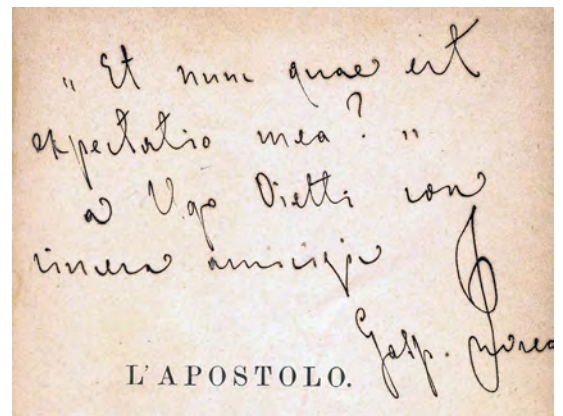 „ Et nunc quae est
expectatio mea? "
a Ugo Ojetti con
sincera amicizia
Gasp. Invrea
L'APOSTOLO.